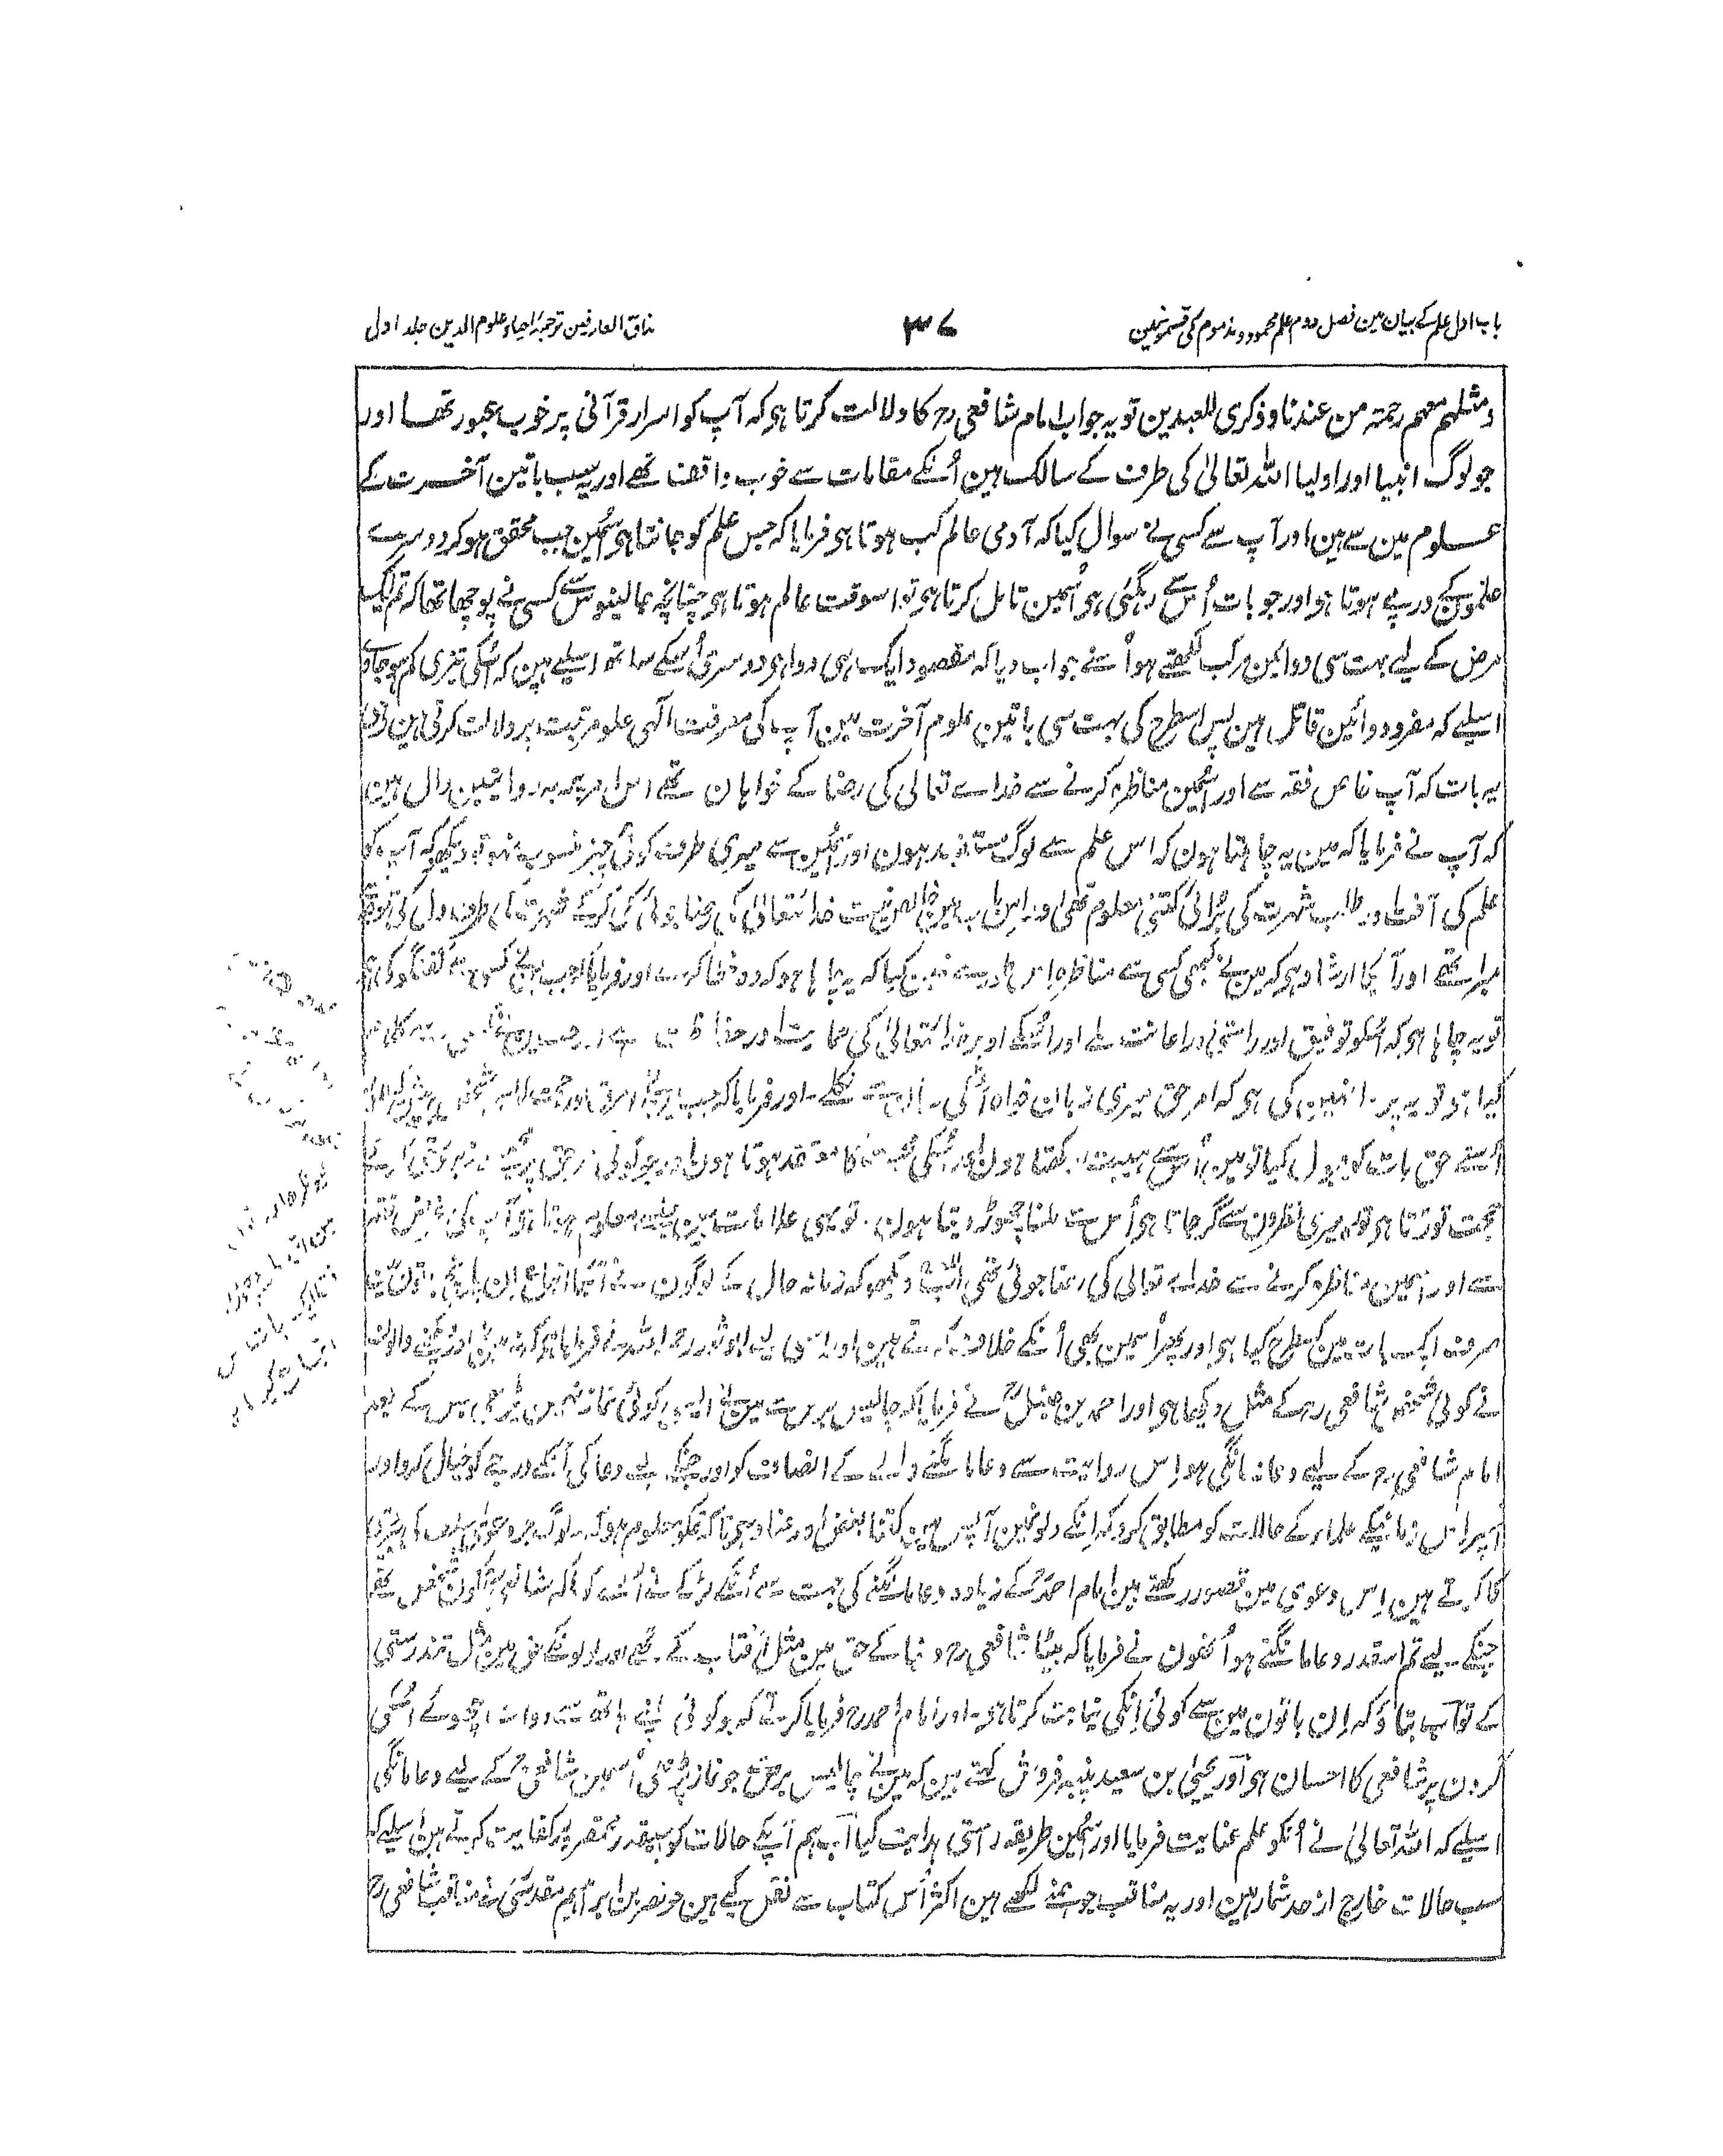 باب اول علم کے بیان مین فصل دوم علم محمود و مذموم کی قسمونمین
۳۷
مذاق العارفین ترجمۂ احیاء علوم الدین جلد اول
ومثلہم معہم رحمۃ من عندنا وذکری للعبدین تو یہ جواب امام شافعی رح کا دلالت کرتا ہو کہ آپ کو اسرار قرآنی پر خوب عبور تھا اور
جو لوگ انبیا اور اولیا اللہ تعالیٰ کی طرف کے سالک ہین اُنکے مقامات سے خوب واقف تھے اور یہ سب باتین آخرت کے
علوم مین سے ہین اور آپ سے کسی نے سوال کیا کہ آدمی عالم کب ہوتا ہو فرمایا کہ جس علم کو جانتا ہو اُسمین جب محقق ہو کر دوسرے
علمونکے درپے ہوتا ہو اور جو بات اُس سے رہگئی ہو اُسمین تامل کرتا ہو تو اسوقت عالم ہوتا ہو چنانچہ جالینوس سے کسی نے پوچھا تھا کہ تم ایک
مرض کے لیے بہت سی دوائین مرکب لکھتے ہو اُسنے جواب دیا کہ مقصود ایک ہی دوا ہو دوسری اُسکے ساتھ اسلیے ہین کہ اُسکی تیزی کم ہو جاوے
اسلیے کہ مفرد دوائین قاتل ہین پس اسطرح کی بہت سی باتین علوم آخرت مین آپ کی معرفت الٰہی علو مرتبت پر دلالت کرتی ہین
یہ بات کہ آپ خاص فقہ سے اور اُسمین مناظرہ کرنے سے خداے تعالی کی رضا کے خواہان تھے اس پر یہ روایتین دال ہین
کہ آپ نے فرمایا کہ مین یہ چاہتا ہون کہ اس علم سے لوگ مستفید ہون اور اُسمین سے میری طرف کوئی چیز منسوب نہو تو دیکھو کہ آپ کو
علم کی آفت اور طلب شہرت کی بُرائی کتنی معلوم تھی اور اس باب مین خالص نیت خدا تعالیٰ کی رضا
تھے اور آپکا ارشاد ہو کہ مین نے کبھی کسی سے مناظرہ اس نیت سے نہین کیا کہ یہ چاہا ہو کہ وہ خطا کرے اور فرمایا کہ جب مین نے کسی سے گفتگو کی ہو
تو یہ چاہا ہو کہ اُسکو توفیق اور راستی اور اعانت ملے اور اُسکے اوپر خدا تعالیٰ کی حمایت اور حفاظت
کیا ہو تو یہ پروا نہین کی ہو کہ امر حق میری زبان خواہ اُسکی زبان سے نکلے۔ اور فرمایا کہ جب
اُسنے حق بات کو قبول کیا تو مین اُس سے ہیبت رکھتا ہون اور اُسکی محبت کا معتقد ہوتا ہون اور جو کوئی
حجت توڑتا ہو تو وہ میری نظرون سے گر جاتا ہو اُس سے ملنا چھوڑ دیتا ہون۔ تو یہی علامات ہین جنسے معلوم ہوتا ہو آپ کی غرض فقہ
سے اور اُسمین مناظرہ کرنے سے خداے تعالی کی رضا جوئی تھی اب دیکھو کہ زمانہ حال کے لوگون نے آپکا اتباع ان پانچ باتون مین سے
صرف ایک بات مین کسطرح کیا ہو اور پھر اُسمین بھی اُنکے خلاف کرتے ہین اور اسی لیے ابو ثور رحمہ اللہ نے فرمایا ہو کہ نہ مین نے اور نہ دیکھنے والون
نے کوئی شخص شافعی رح کے مثل دیکھا ہو اور احمد بن حنبل رح نے فرمایا کہ چالیس برس سے مین نے ایسی کوئی نماز نہین پڑھی جس کے بعد
امام شافعی رح کے لیے دعا نہ مانگی ہو اس روایت سے دعا مانگنے والے کے انصاف کو اور جنکے لیے دعا کی اُنکے درجے کو خیال کرو اور
اُسپر اس زمانیکے علماء کے حالات کو مطابق کرو کہ اُنکے دلونمین آپس مین کتنا بغض اور عناد ہو تاکہ تمکو معلوم ہو
کرتے ہین اس دعوی مین قصور رکھتے ہین امام احمد رح کے زیادہ دعا مانگنے کی جہت سے اُنکے لڑکے نے اُنسے کہا کہ شافعی کون شخص تھے
جنکے لیے تم اسقدر دعا مانگتے ہو اُنھون نے فرمایا کہ بیٹا شافعی رح دنیا کے حق مین مثل آفتاب کے تھے اور لوگونکے حق مین مثل تندرستی
کے تو اب بتاؤ کہ ان باتون مین سے کوئی اُنکی نیابت کرتا ہو۔ اور امام احمد رح فرمایا کرتے کہ جو کوئی اپنے ہاتھ سے دوات چھوئے اُسکی
گردن پر شافعی کا احسان ہو اور یحییٰ بن سعید پنبہ فروش کہتے ہین کہ مین نے چالیس برس جو نماز پڑھی اُسمین شافعی رح کے لیے دعا مانگی
اسلیے کہ اللہ تعالیٰ نے اُنکو علم عنایت فرمایا اور اُسمین طریقہ راستی ہدایت کیا اب ہم آپکے حالات کو اسیقدر مختصر پر کفایت کرتے ہین اسلیے کہ
سب حالات خارج از حد شمار ہین اور یہ مناقب جو ہمنے لکھے ہین اکثر اُس کتاب سے نقل کیے ہین جو نصر بن ابراہیم مقدسی نے مناقب شافعی رح